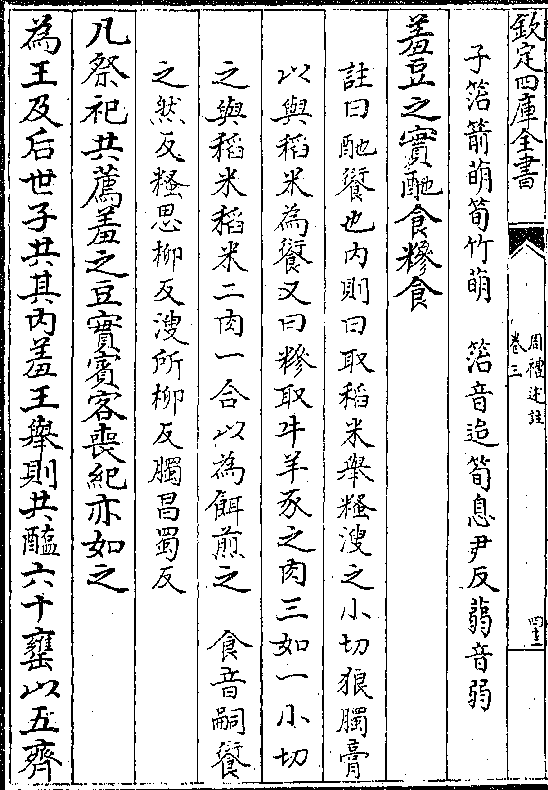 欽定四庫全書
周禮述註
卷三
四十二
子箈箭萌筍竹萌　箈音迨筍息尹反蒻音弱
羞豆之實酏食糝食
註曰酏餐也內則曰取稻米舉糔溲之小切狼臅膏
以與稻米為餐又曰糝取牛羊豕之肉三如一小切
之與稻米稻米二肉一合以為餌煎之　食音嗣餐
之然反糔思柳反溲所柳反臅昌蜀反
凡祭祀共薦羞之豆實賓客喪紀亦如之
為王及后世子共其內羞王舉則共醢六十罋以五齊